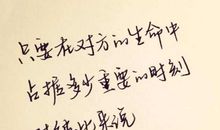 只要在对方的生命中
占据多少重要的时刻